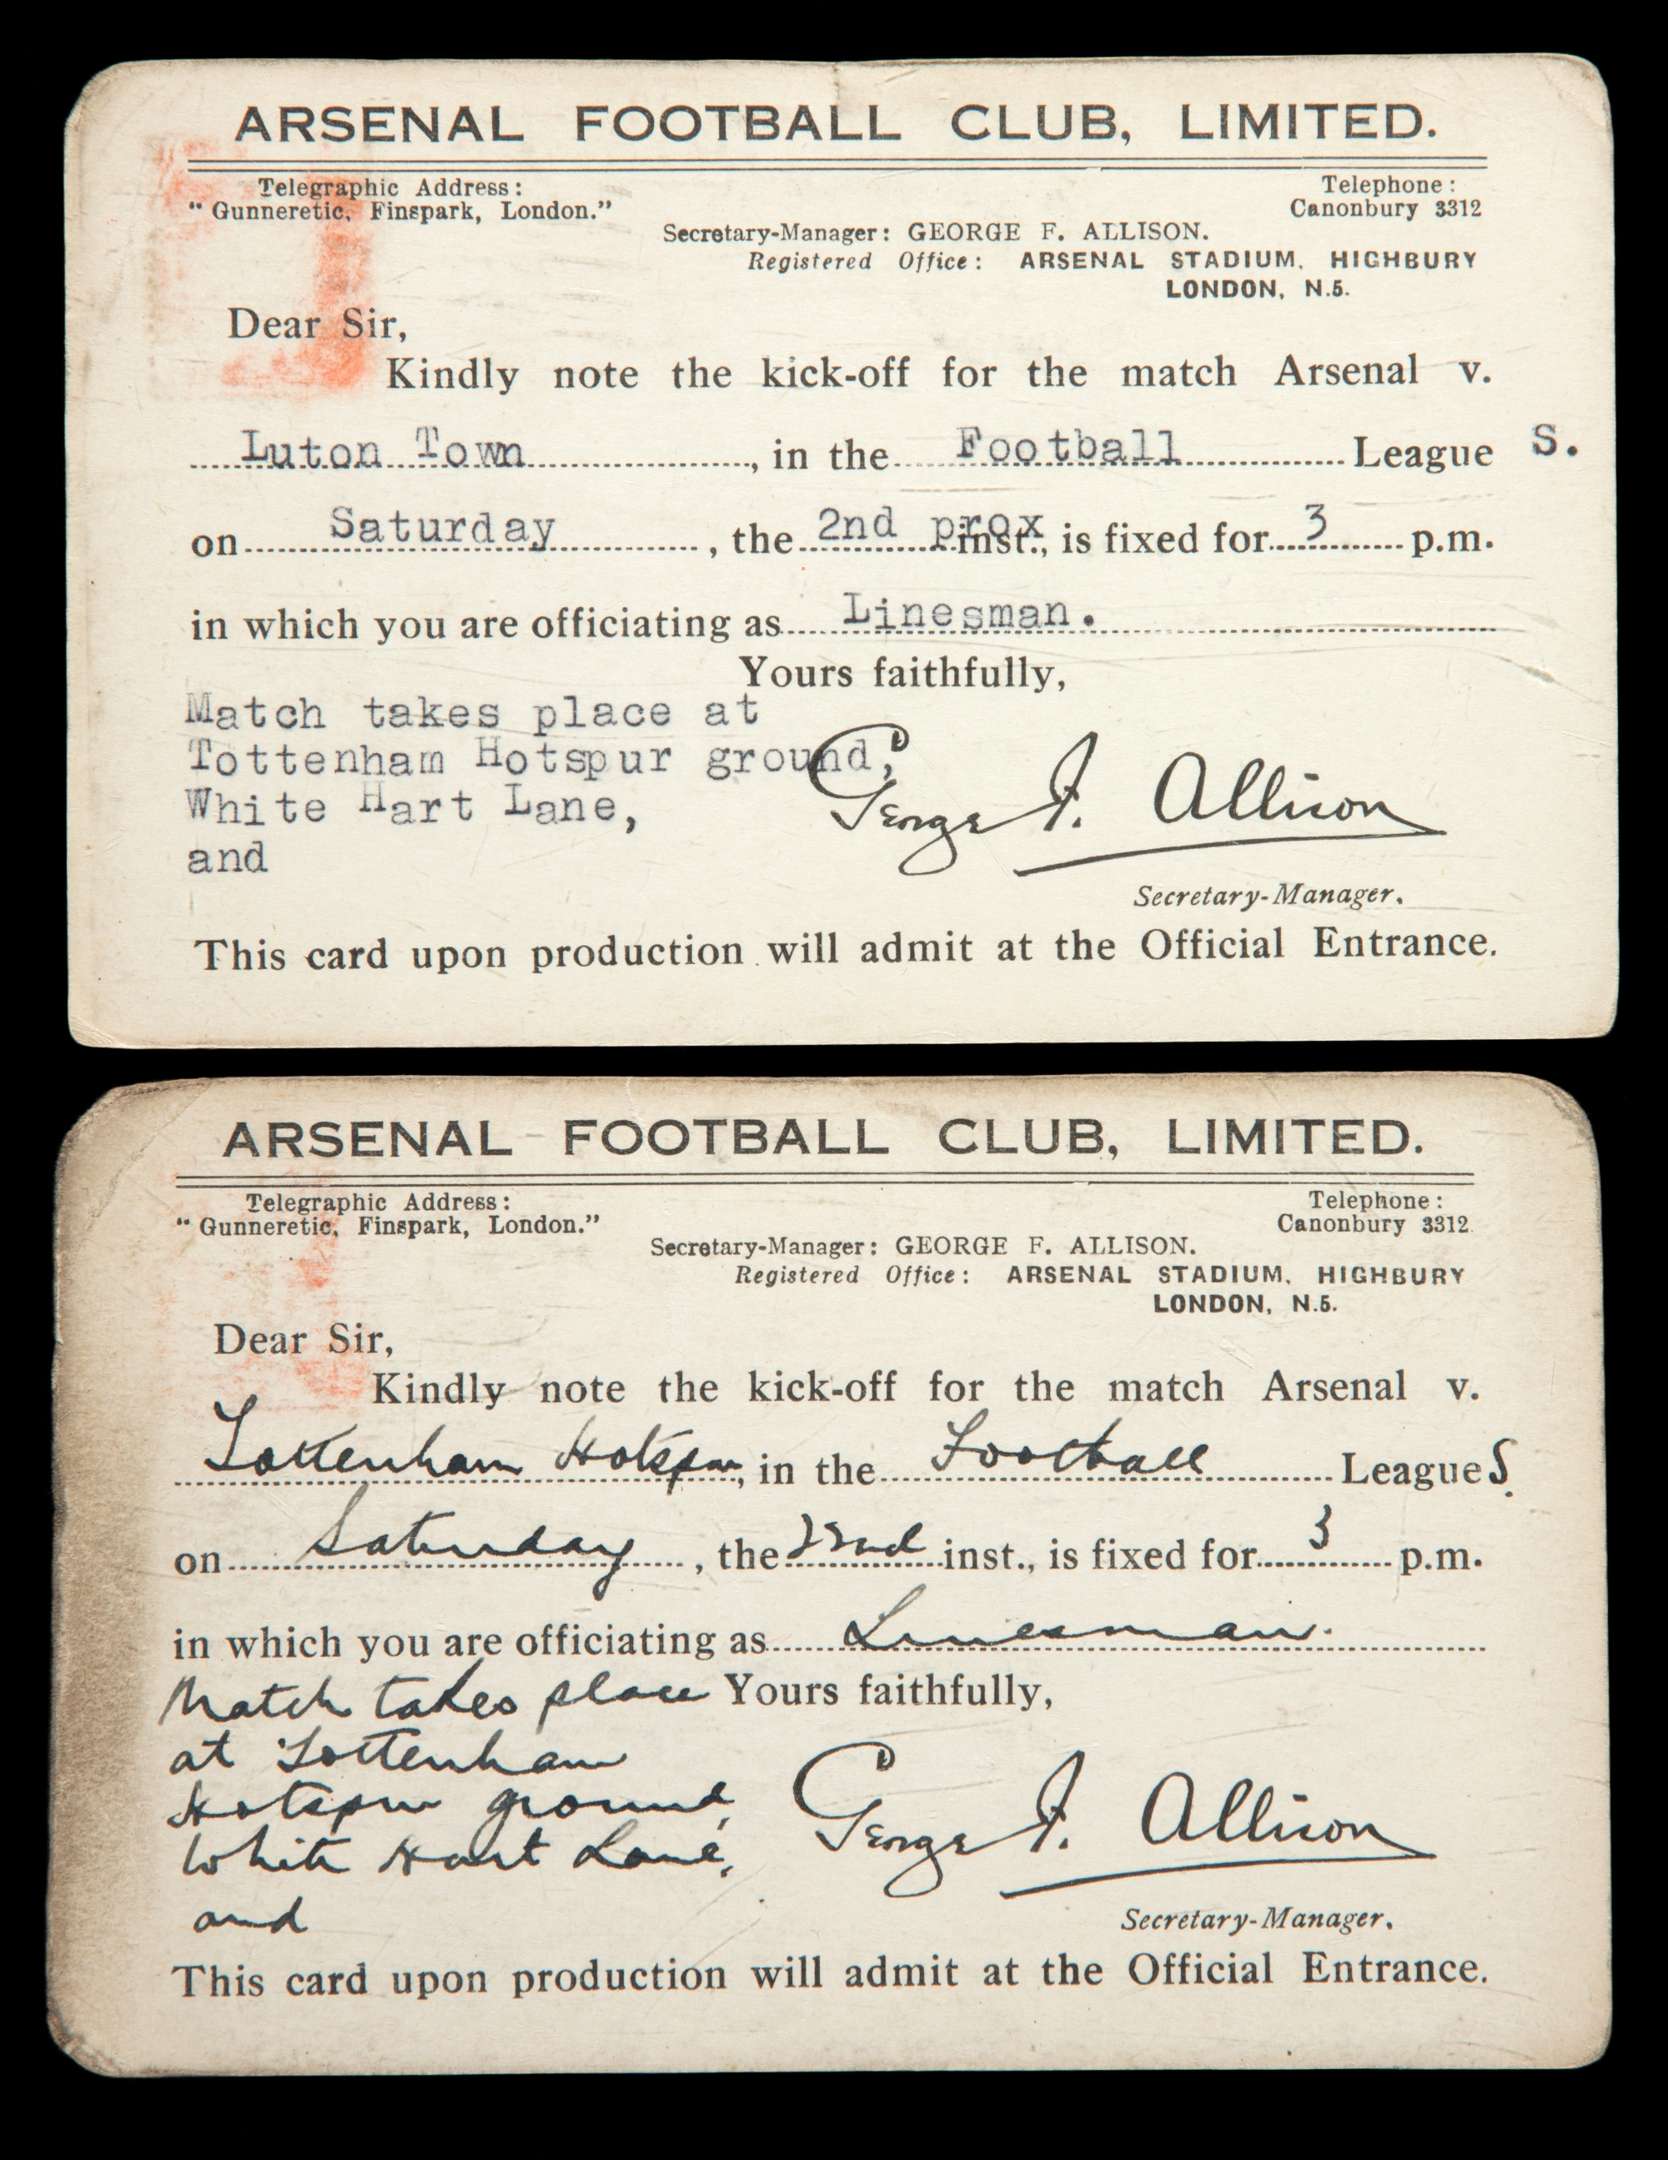 ARSENAL FOOTBALL CLUB, LIMITED.
Telegraphic Address:
"Gunneretic, Finspark, London."
Telephone:
Canonbury 3312
Secretary-Manager: GEORGE F. ALLISON.
Registered Office: ARSENAL STADIUM, HIGHBURY
LONDON, N.5.
Dear Sir,
Kindly note the kick-off for the match Arsenal v.
Luton Town, in the Football League S.
on Saturday, the 2nd prox inst., is fixed for 3 p.m.
in which you are officiating as Linesman.
Yours faithfully,
Match takes place at
Tottenham Hotspur ground,
White Hart Lane,
and
George F. Allison
Secretary-Manager.
This card upon production will admit at the Official Entrance.
ARSENAL FOOTBALL CLUB, LIMITED.
Telegraphic Address:
"Gunneretic, Finspark, London."
Telephone:
Canonbury 3312
Secretary-Manager: GEORGE F. ALLISON.
Registered Office: ARSENAL STADIUM, HIGHBURY
LONDON, N.5.
Dear Sir,
Kindly note the kick-off for the match Arsenal v.
Tottenham Hotspur, in the Football League S.
on Saturday, the 22nd inst., is fixed for 3 p.m.
in which you are officiating as Linesman.
Match takes place Yours faithfully,
at Tottenham
Hotspur ground,
White Hart Lane,
and
George F. Allison
Secretary-Manager.
This card upon production will admit at the Official Entrance.